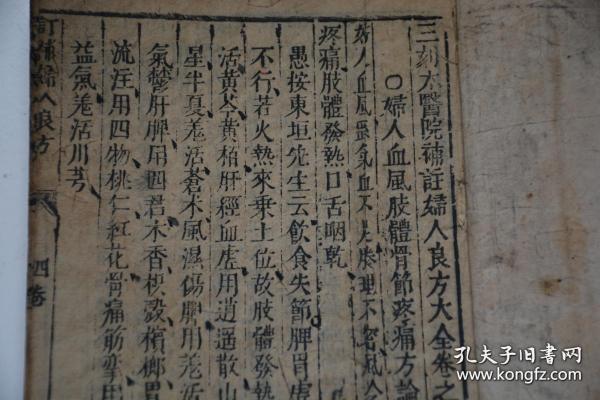 三刻太醫院補註婦人良方大全卷之
○婦人血風肢體骨節疼痛方論
婦人血風
氣血不足腠理不密風冷
疼痛肢體發熱口舌咽乾
愚按東垣先生云飲食失節脾胃虛
不行若火熱來乗上位故肢體發熱
活黄芩黄栢肝經血虛用逍遥散山
星半夏羗活蒼木風濕傷脾用羗活
氣鬱肝脾用四君木香梹榖檳榔胃
流注用四物桃仁紅花骨痛筋攣用
益氣羗活川芎
訂補婦人良方
四卷
孔夫子旧書网
www.kongfz.com